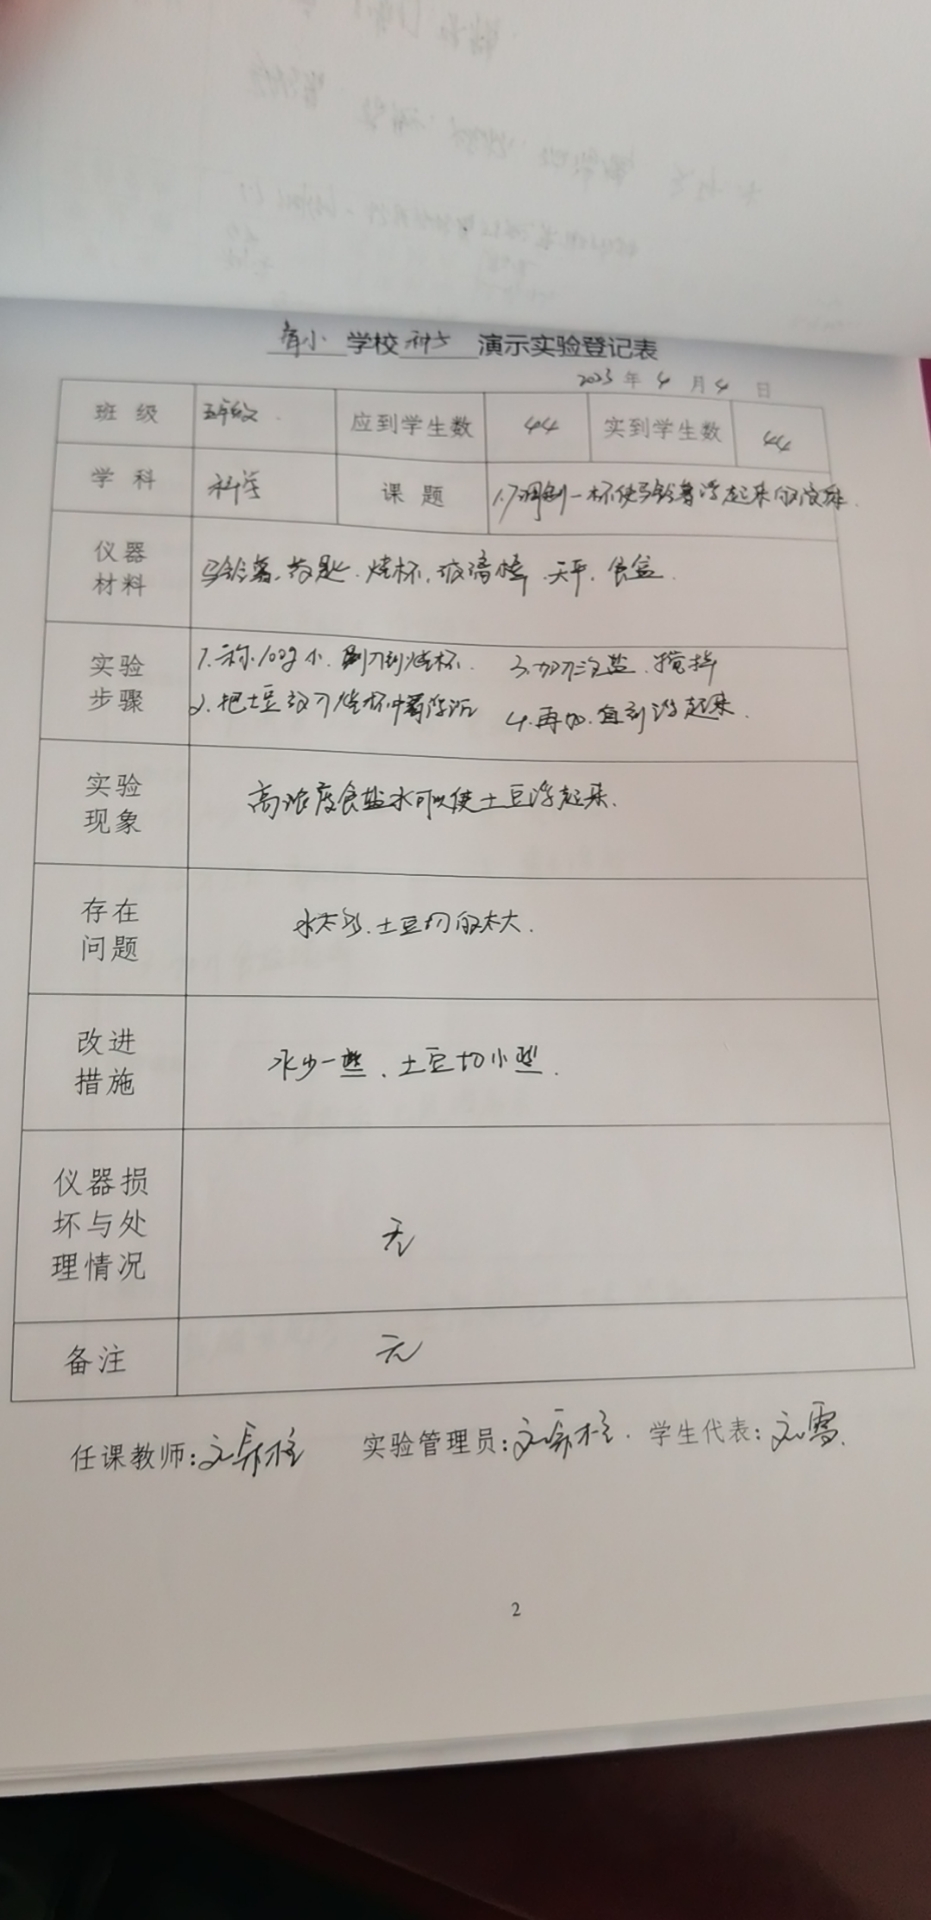 小 学校 科学 演示实验登记表
2023 年 4 月 4 日
班级 五年级 应到学生数 44 实到学生数 44
学科 科学 课题 1.7调制一杯使马铃薯浮起来的液体
仪器材料 马铃薯、药匙、烧杯、玻璃棒、天平、食盐
实验步骤 1.称100g水,倒入到烧杯.
2.把土豆放入烧杯中看浮沉
3.加入食盐.搅拌
4.再加.直到浮起来.
实验现象 高浓度食盐水可以使土豆浮起来.
存在问题 水太多.土豆切的太大.
改进措施 水少一些、土豆切小些.
仪器损坏与处理情况 无
备注 无
任课教师: 实验管理员: 学生代表:
2